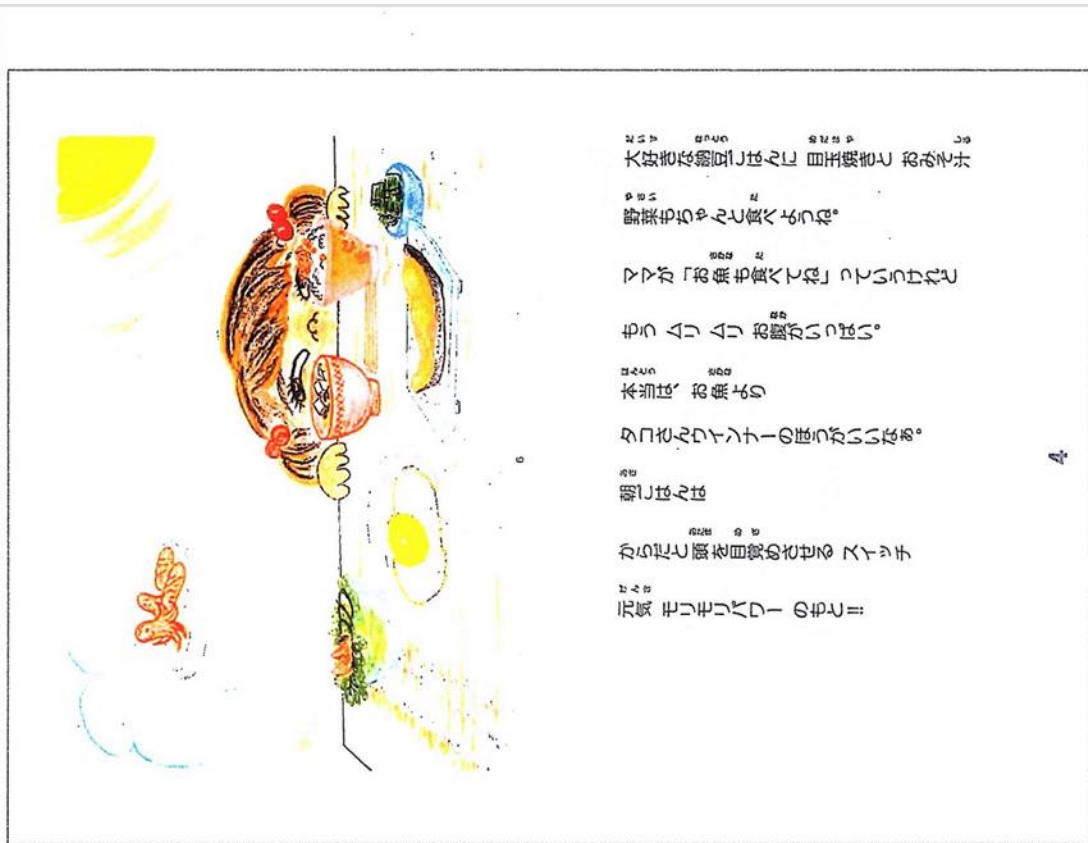 大好きな納豆ごはんに 目玉焼きと おみそ汁
野菜もちゃんと食べようね。
ママが「お魚も食べてね」っていうけれど
もう ムリ ムリ お腹がいっぱい。
本当は、お魚より
タコさんウインナーのほうがいいなぁ。
朝ごはんは
からだと頭を目覚めさせる スイッチ
元気 モリモリパワー のもと!!
6
4